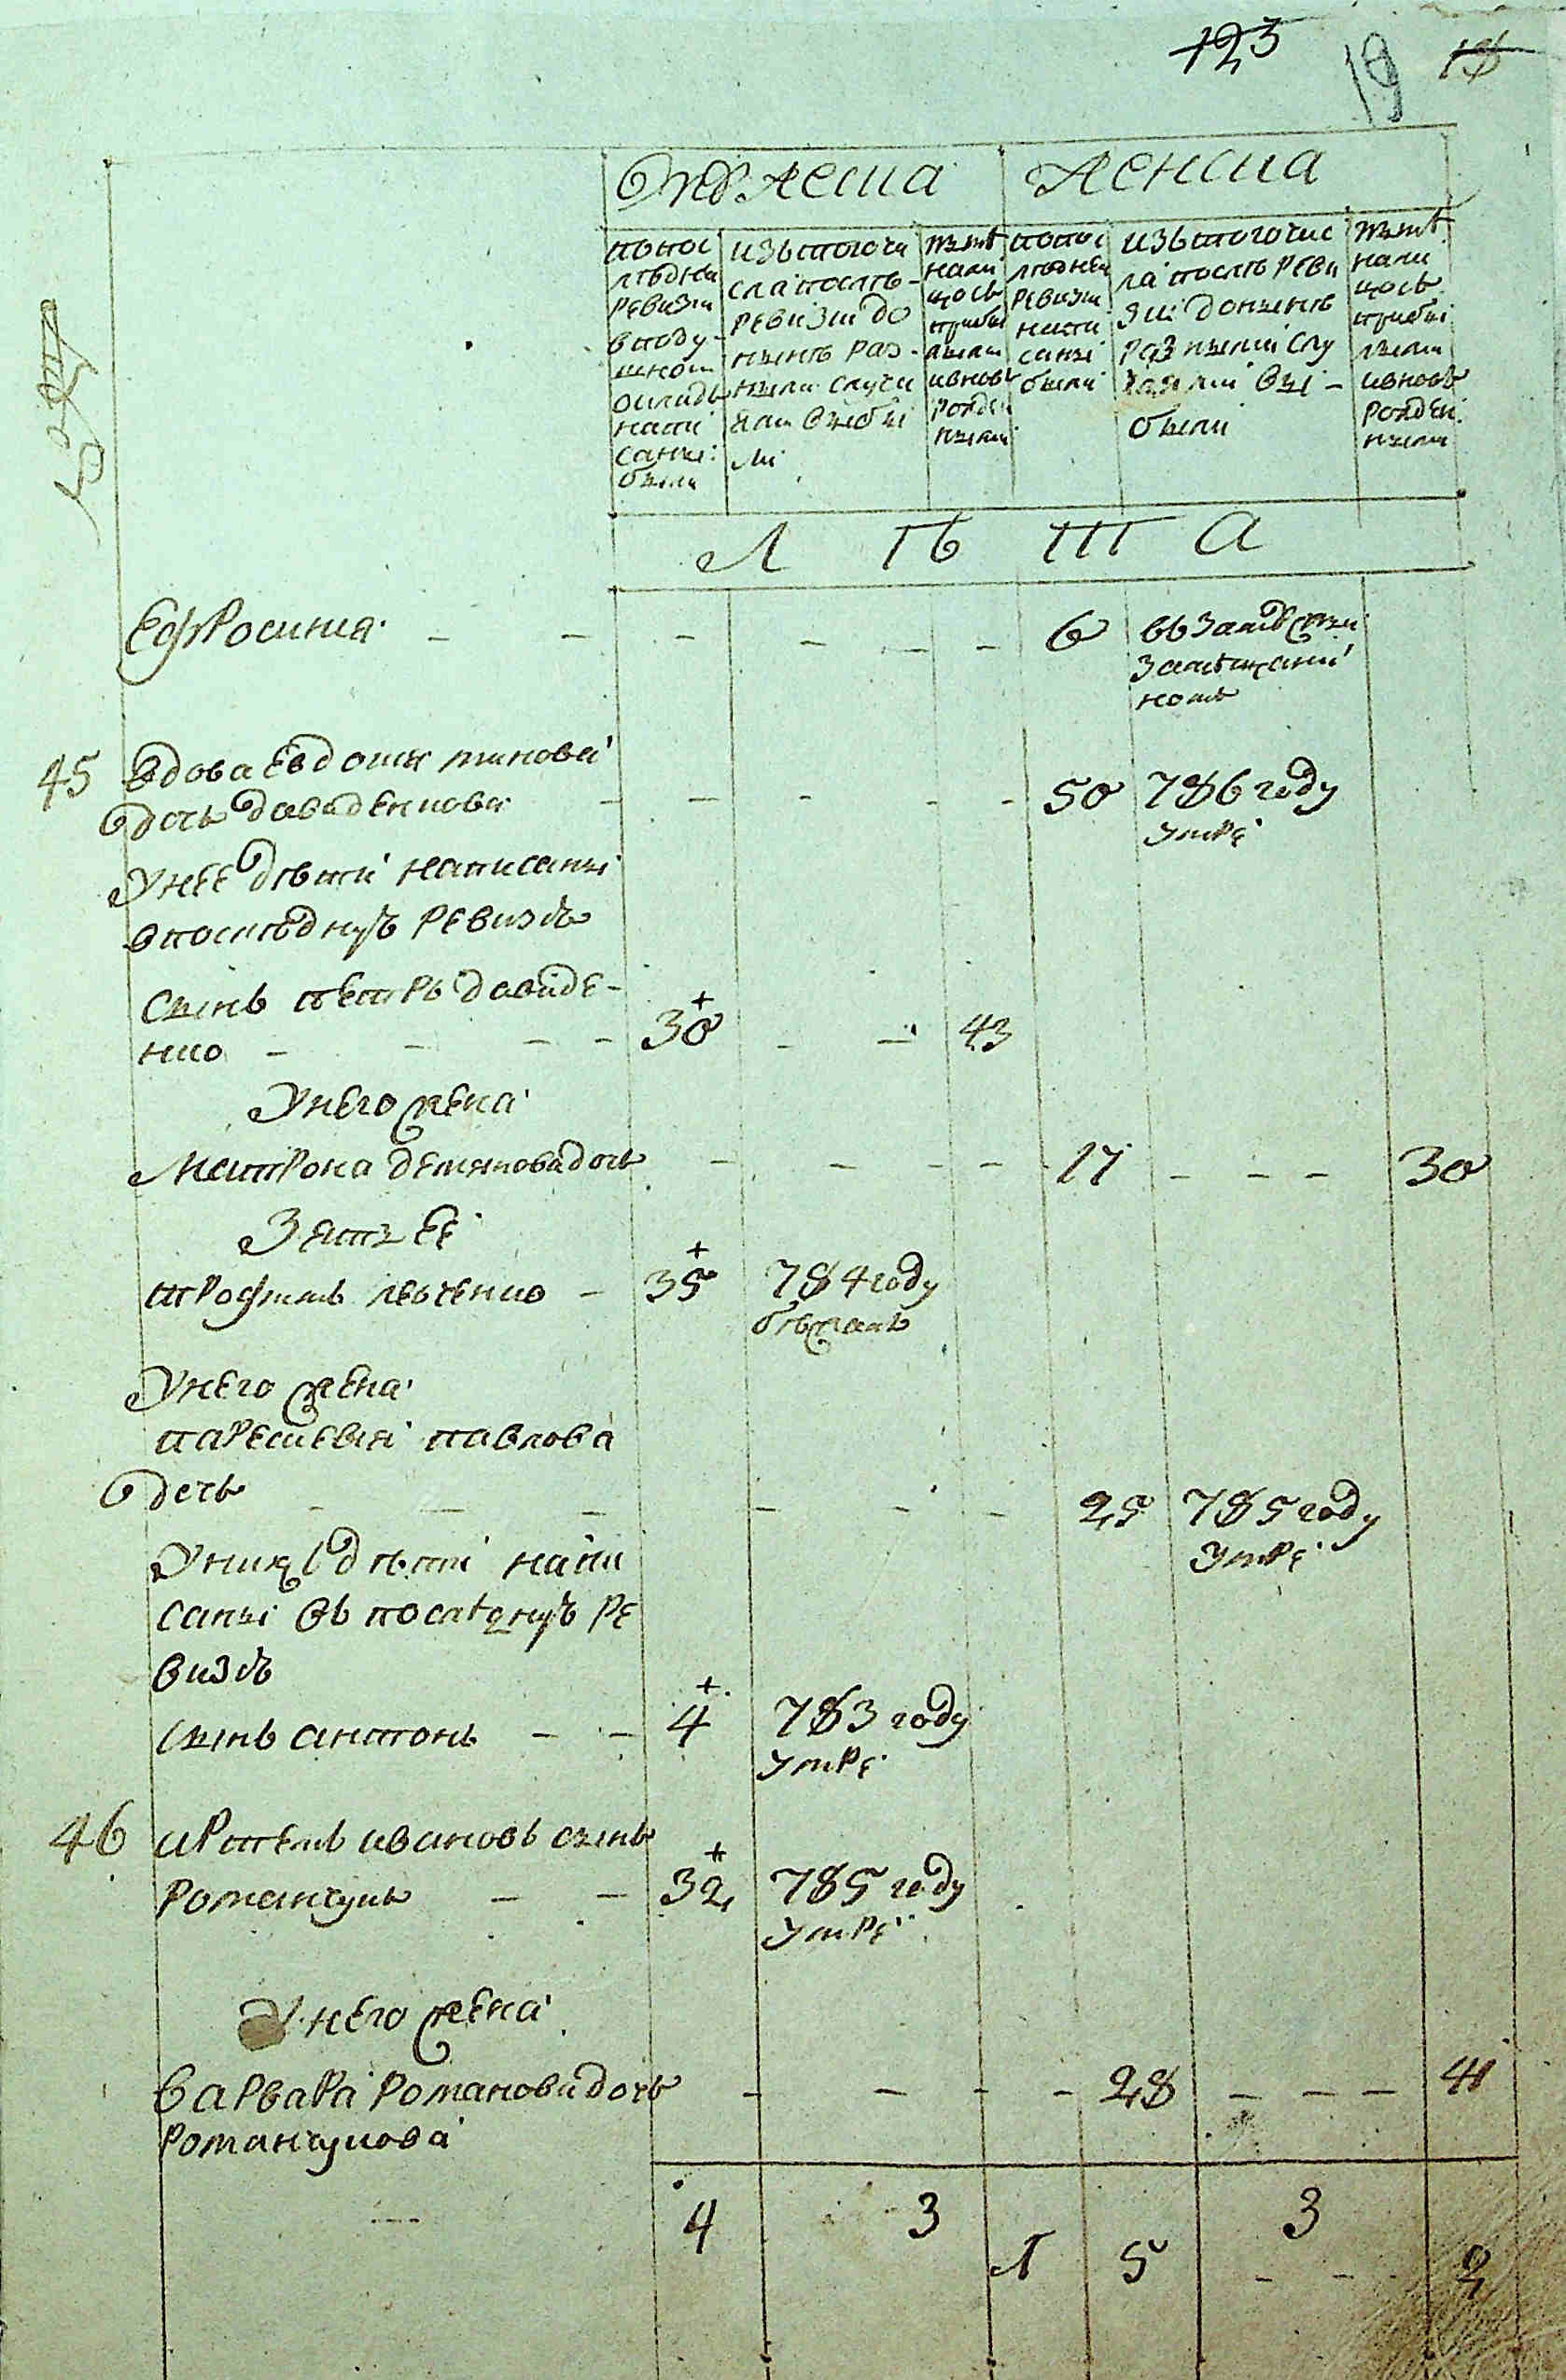 123 19 18
Мужеска Женска
по пос
лѣдней
ревизии
в поду-
шном
окладѣ
напи
саны
были
изъ того чи
сла после
ревизии до
ныне раз-
ными случа
ями выбы
ли
ныне
нали
цось
прибы
лыми
и вновь
рожден
ными
по пос
лѣдней
ревизии
напи
саны
были
изъ того чис
ла после реви
зии до ныне
разными слу
чаями вы-
были
ныне
нали
цось
прибы
лыми
и вновь
рожден
ными
Л ѣ т а
Ефросиния 6 въ замуж
50 786 году
45 вдова Евдокия
дочь давиденкова
умре
У нее дѣти написаны
в последную ревизѣю
сынъ петръ давиде-
нко 30 43
У него жена
Матрона демянова дочь 17 30
Зять ее
трофимъ левченко 35 784 году
бѣжалъ
У него жена
параскевия павлова
дочь 25 785 году
умре
У них дѣти напи
саны въ последную ре
визѣю
сынъ антонъ 4 783 году
умре
46 Артемъ ивановъ сынъ
романчукъ 32 785 году
умре
У него жена
варвара романова дочь 28 41
романчукова
4 3 1 5 3 2